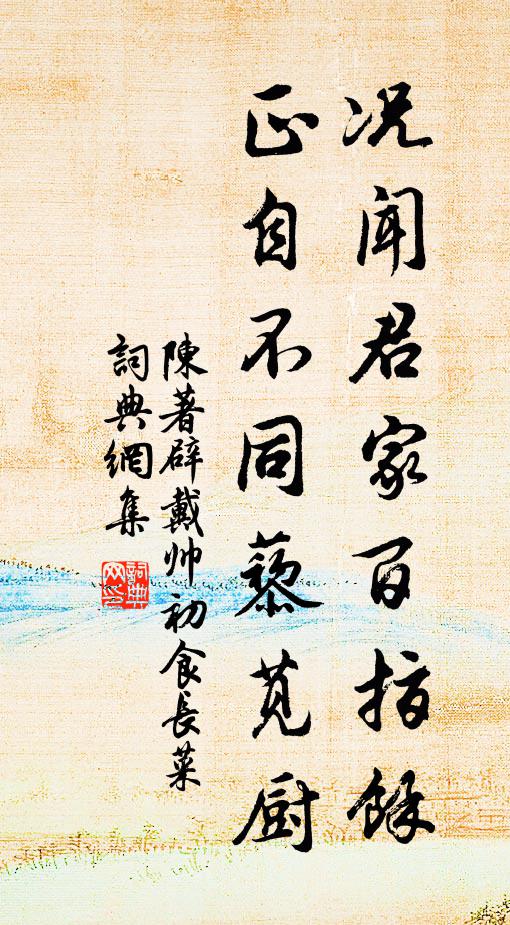 况闻君家百指馀
正自不同藜苋厨
陳著辟戴帅初食長菜
詞典網集
詞典网印